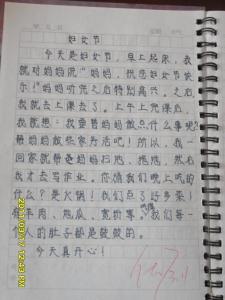 妇女节
今天是妇女节，早上起来，我
就对妈妈说"妈妈，祝您妇女节快
乐！"妈妈听完之后特别高兴，之后
我就去上课了。上午上完课后，
我就想：我要替妈妈做点什么事呢？
帮妈妈做些家务活吧！所以，我一
回家就帮着妈妈扫地、拖地，然后我
才去写作业。你猜我们晚上吃的
什么？是火锅！我们点了好多菜！
牛羊肉、地瓜、宽粉等，我们每一
个人的肚子都是鼓鼓的。
今天真开心！
2011/03/17 12:43 PM